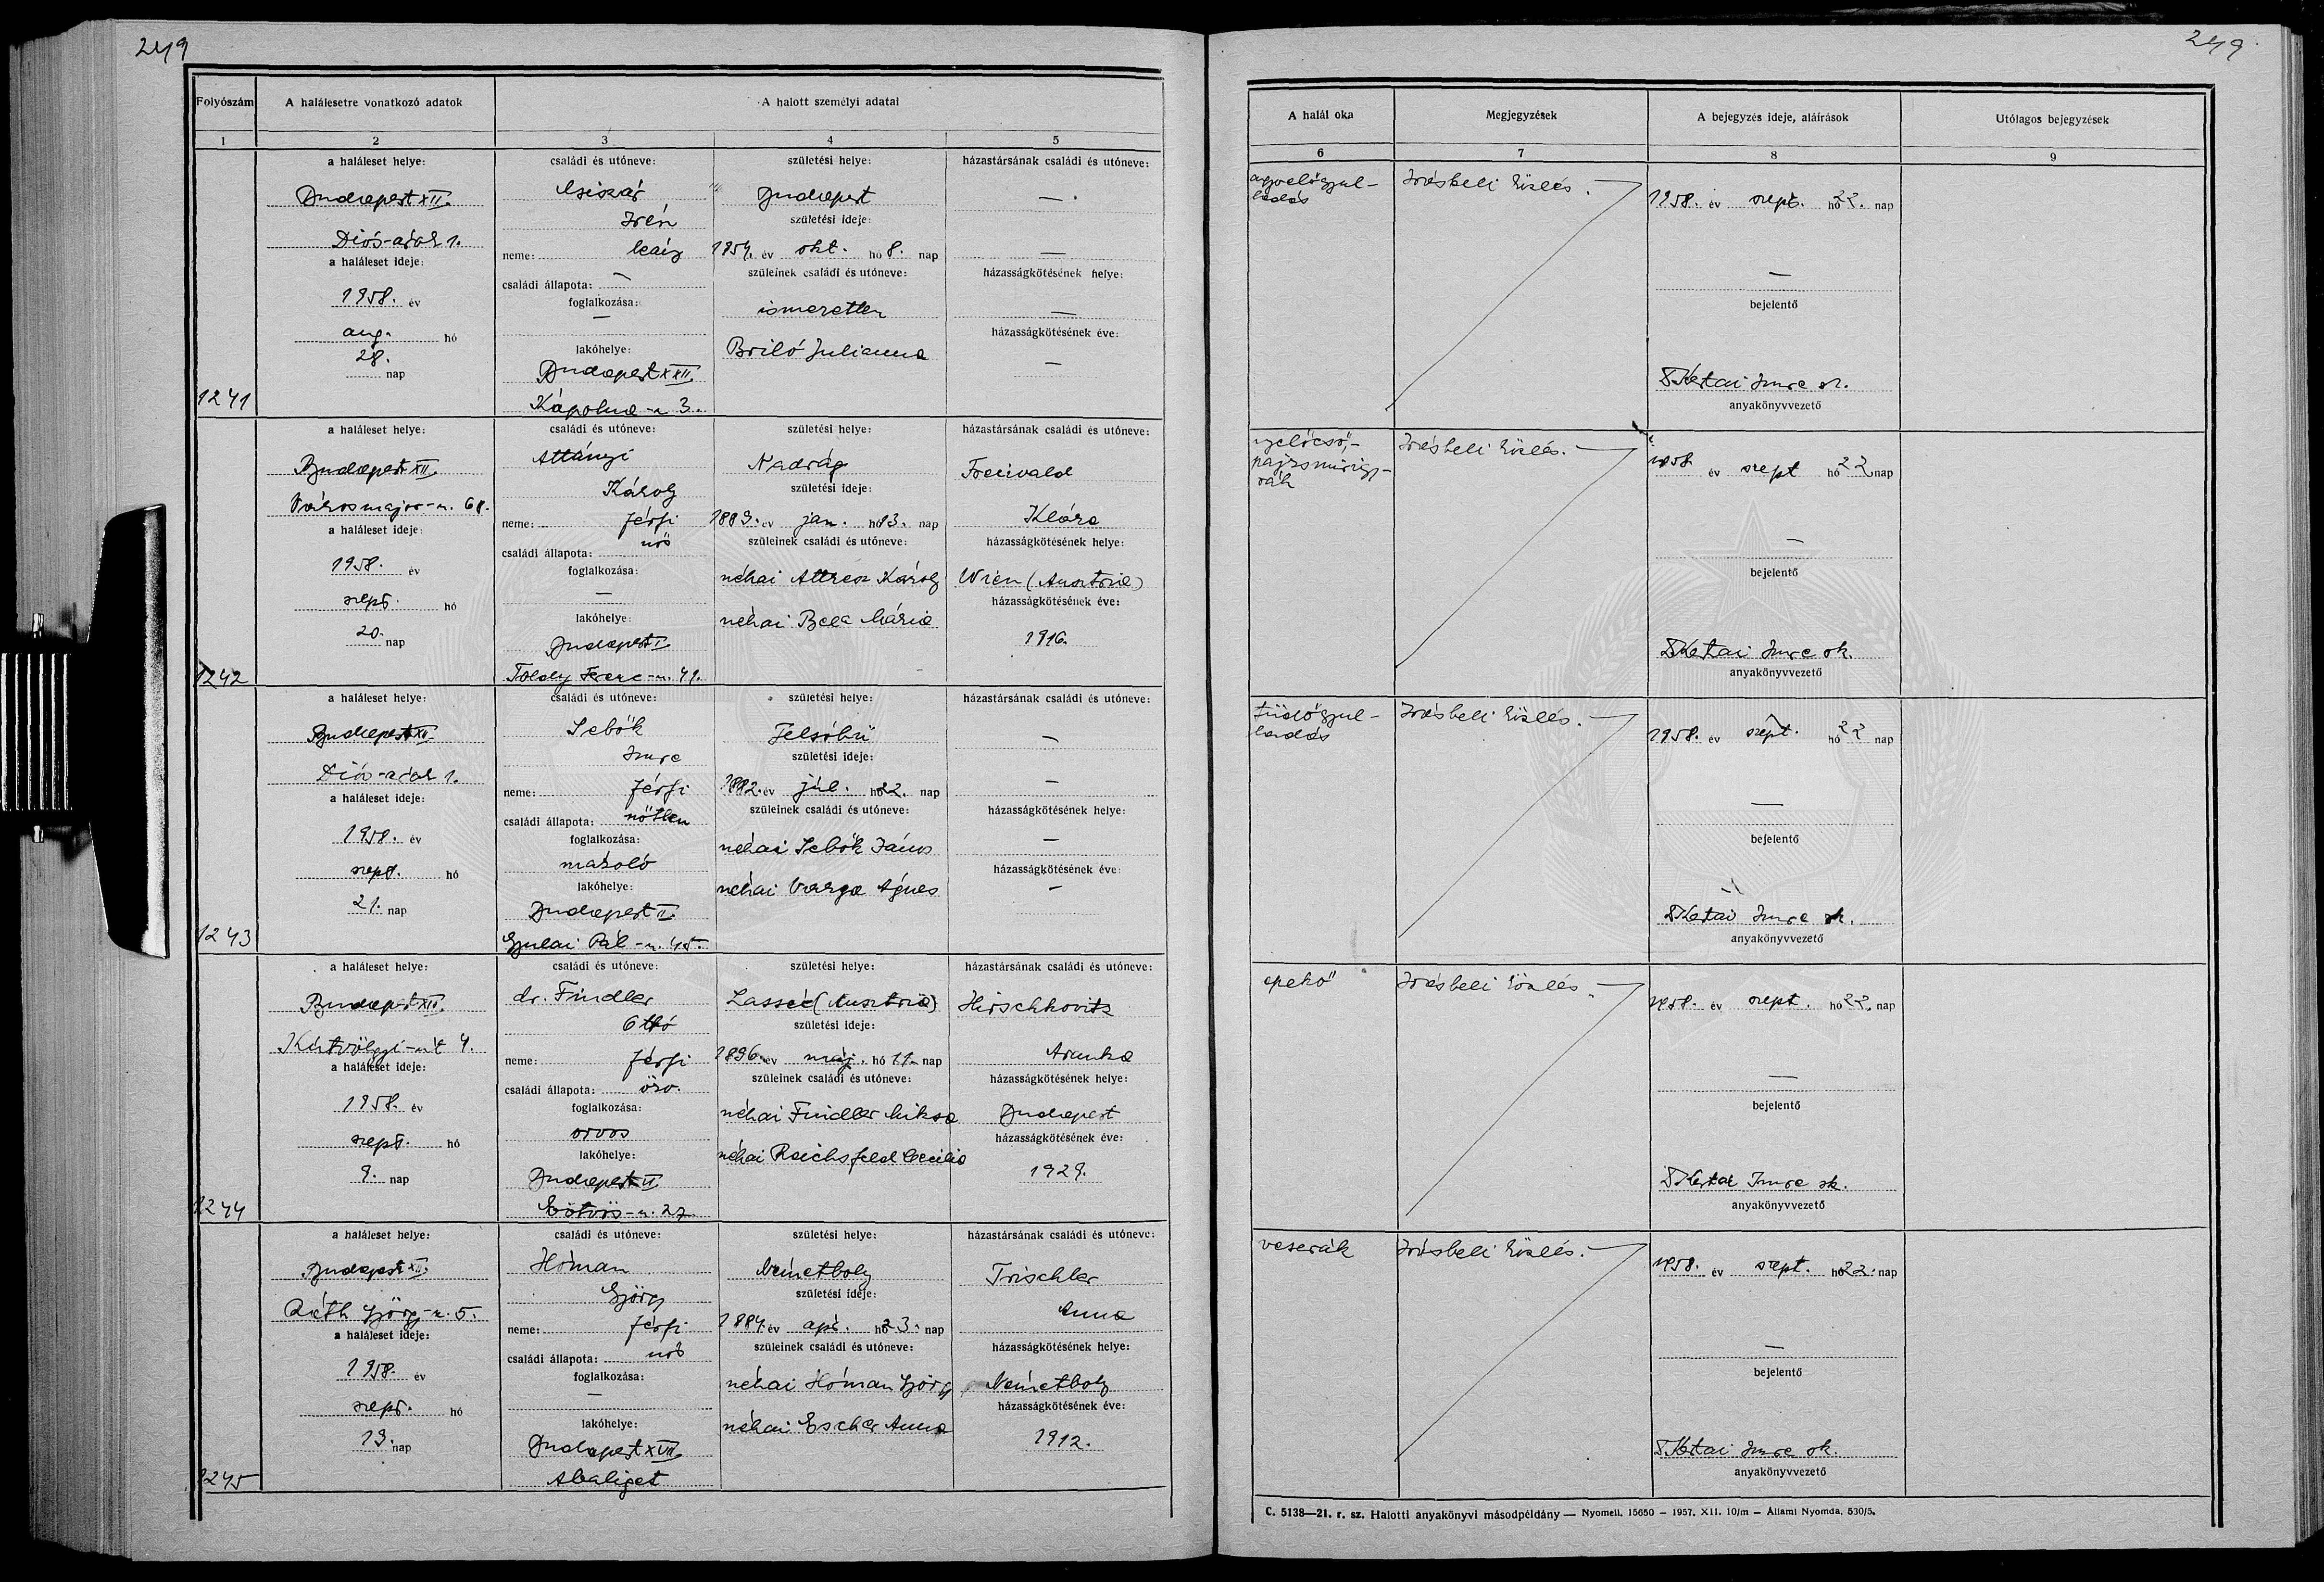 249
249
Folyószám
A halálesetre vonatkozó adatok
A halott személyi adatai
1
2
3
4
5
a haláleset helye:
Budapest XII.
Diós-árok 1.
a haláleset ideje:
1958. év
aug. hó
28. nap
1241
családi és utóneve:
Csiszár
Irén
neme: leány
családi állapota: —
foglalkozása:
—
lakóhelye:
Budapest XXII.
Kápolna-u 3.
születési helye:
Budapest
születési ideje:
1954. év okt. hó 8. nap
szüleinek családi és utóneve:
ismeretlen
Briló Julianna
házastársának családi és utóneve:
—
—
házasságkötésének helye:
—
házasságkötésének éve:
—
a haláleset helye:
Budapest XII.
Városmajor-u. 68.
a haláleset ideje:
1958. év
szept. hó
20. nap
1242
családi és utóneve:
Attányi
Károly
neme: férfi
családi állapota: nős
foglalkozása:
—
lakóhelye:
Budapest I.
Toldy Ferenc-u. 41.
születési helye:
Nadrág
születési ideje:
1883. év jan. hó 13. nap
szüleinek családi és utóneve:
néhai Károly
néhai Mária
házastársának családi és utóneve:
Freivald
Klára
házasságkötésének helye:
Wien (Ausztria)
házasságkötésének éve:
1916.
a haláleset helye:
Budapest XII.
Diós-árok 1.
a haláleset ideje:
1958. év
szept. hó
21. nap
1243
családi és utóneve:
Sebők
Imre
neme: férfi
családi állapota: nőtlen
foglalkozása:
maróló
lakóhelye:
Budapest
Gyulai Pál-u. 45.
születési helye:
születési ideje:
1882. év júl. hó 22. nap
szüleinek családi és utóneve:
néhai Sebők János
néhai Varga Ágnes
házastársának családi és utóneve:
—
—
házasságkötésének helye:
—
házasságkötésének éve:
—
a haláleset helye:
Budapest XII.
Kútvölgyi-út 4.
a haláleset ideje:
1958. év
szept. hó
9. nap
1244
családi és utóneve:
dr. Findler
Ottó
neme: férfi
családi állapota: özv.
foglalkozása:
orvos
lakóhelye:
Budapest
Eötvös-u. 27
születési helye:
Lassee (Ausztria)
születési ideje:
1896. év máj. hó 11. nap
szüleinek családi és utóneve:
néhai Findler Miksa
néhai Reichsfeld Cecilia
házastársának családi és utóneve:
Hirschkovits
Aranka
házasságkötésének helye:
Budapest
házasságkötésének éve:
1929.
a haláleset helye:
Budapest XII.
Ráth György-u. 5.
a haláleset ideje:
1958. év
szept. hó
19. nap
1245
családi és utóneve:
Hóman
György
neme: férfi
családi állapota: nős
foglalkozása:
—
lakóhelye:
Budapest XVII.
Abaliget
születési helye:
Németboly
születési ideje:
1884. év ápr. hó 23. nap
szüleinek családi és utóneve:
néhai Hóman György
néhai Escher Anna
házastársának családi és utóneve:
Trischler
Anna
házasságkötésének helye:
Németboly
házasságkötésének éve:
1912.
A halál oka
Megjegyzések
A bejegyzés ideje, aláírások
Utólagos bejegyzések
6
7
8
9
agyvelőgyul-
ladás
Írásbeli közlés.
1958. év szept. hó 22. nap
—
bejelentő
Kertai Imre sk.
anyakönyvvezető
nyelőcső-
pajzsmirigy-
rák
Írásbeli közlés.
1958. év szept hó 22 nap
—
bejelentő
Kertai Imre sk.
anyakönyvvezető
tüdőgyul-
ladás
Írásbeli közlés.
1958. év szept. hó 22 nap
—
bejelentő
Kertai Imre sk.
anyakönyvvezető
epekő
Írásbeli közlés.
1958. év szept. hó 22. nap
—
bejelentő
Kertai Imre sk.
anyakönyvvezető
veserák
Írásbeli közlés.
1958. év szept. hó 22. nap
—
bejelentő
Kertai Imre sk.
anyakönyvvezető
C. 5138—21. r. sz. Halotti anyakönyvi másodpéldány — Nyomell. 15650 – 1957. XII. 10/m – Állami Nyomda. 530/5.